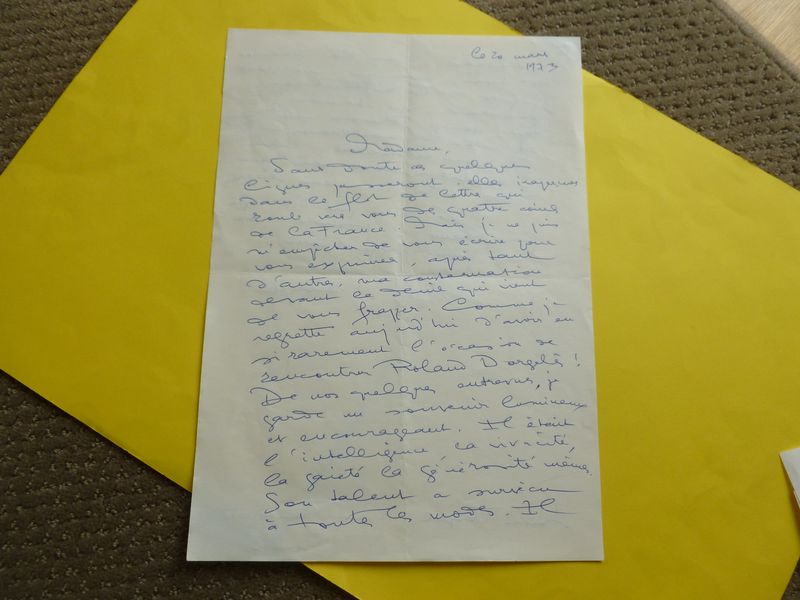 Le 20 mars
1973
Madame,
Sans doute ces quelques
lignes passeront-elles inaperçues
dans le flot de lettres qui
roule vers vous des quatre coins
de la France. Mais je ne puis
m'empêcher de vous écrire pour
vous exprimer, après tant
d'autres, ma consternation
devant le deuil qui vient
de vous frapper. Comme je
regrette aujourd'hui d'avoir eu
si rarement l'occasion de
rencontrer Roland Dorgelès !
De nos quelques entrevues, je
garde un souvenir lumineux
et encourageant. Il était
l'intelligence la vivacité,
la gaieté la générosité mêmes.
Son talent a survécu
à toutes les modes. Il